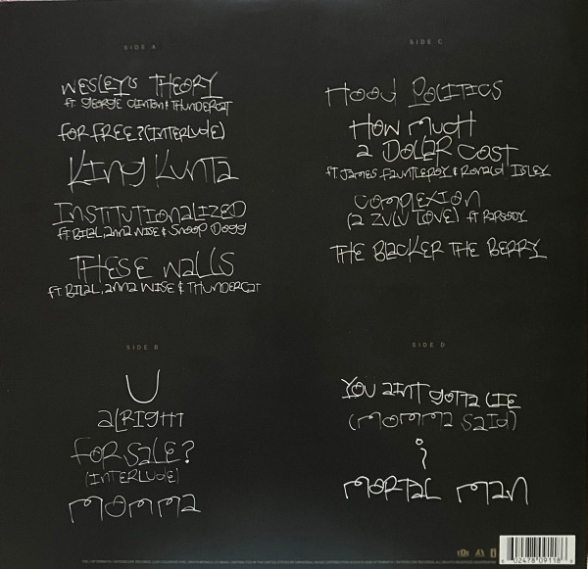 SIDE A
WESLEY'S THEORY
ft GEORGE CLINTON & THUNDERCAT
FOR FREE? (INTERLUDE)
KING KUNTA
INSTITUTIONALIZED
ft BILAL, anna WISE & SNOOP DOGG
THESE WALLS
ft BILAL, anna WISE & THUNDERCAT
SIDE B
U
ALRIGHT
FOR SALE?
(INTERLUDE)
MOMMA
SIDE C
HOOD POLITICS
HOW MUCH
a DOLLAR COST
ft JAMES FAUNTLEROY & RONALD ISLEY
COMPLEXION
(a ZULU LOVE) ft RAPSODY
THE BLACKER THE BERRY
SIDE D
YOU AINT GOTTA LIE
(MOMMA SAID)
i
MORTAL MAN
02478 09118